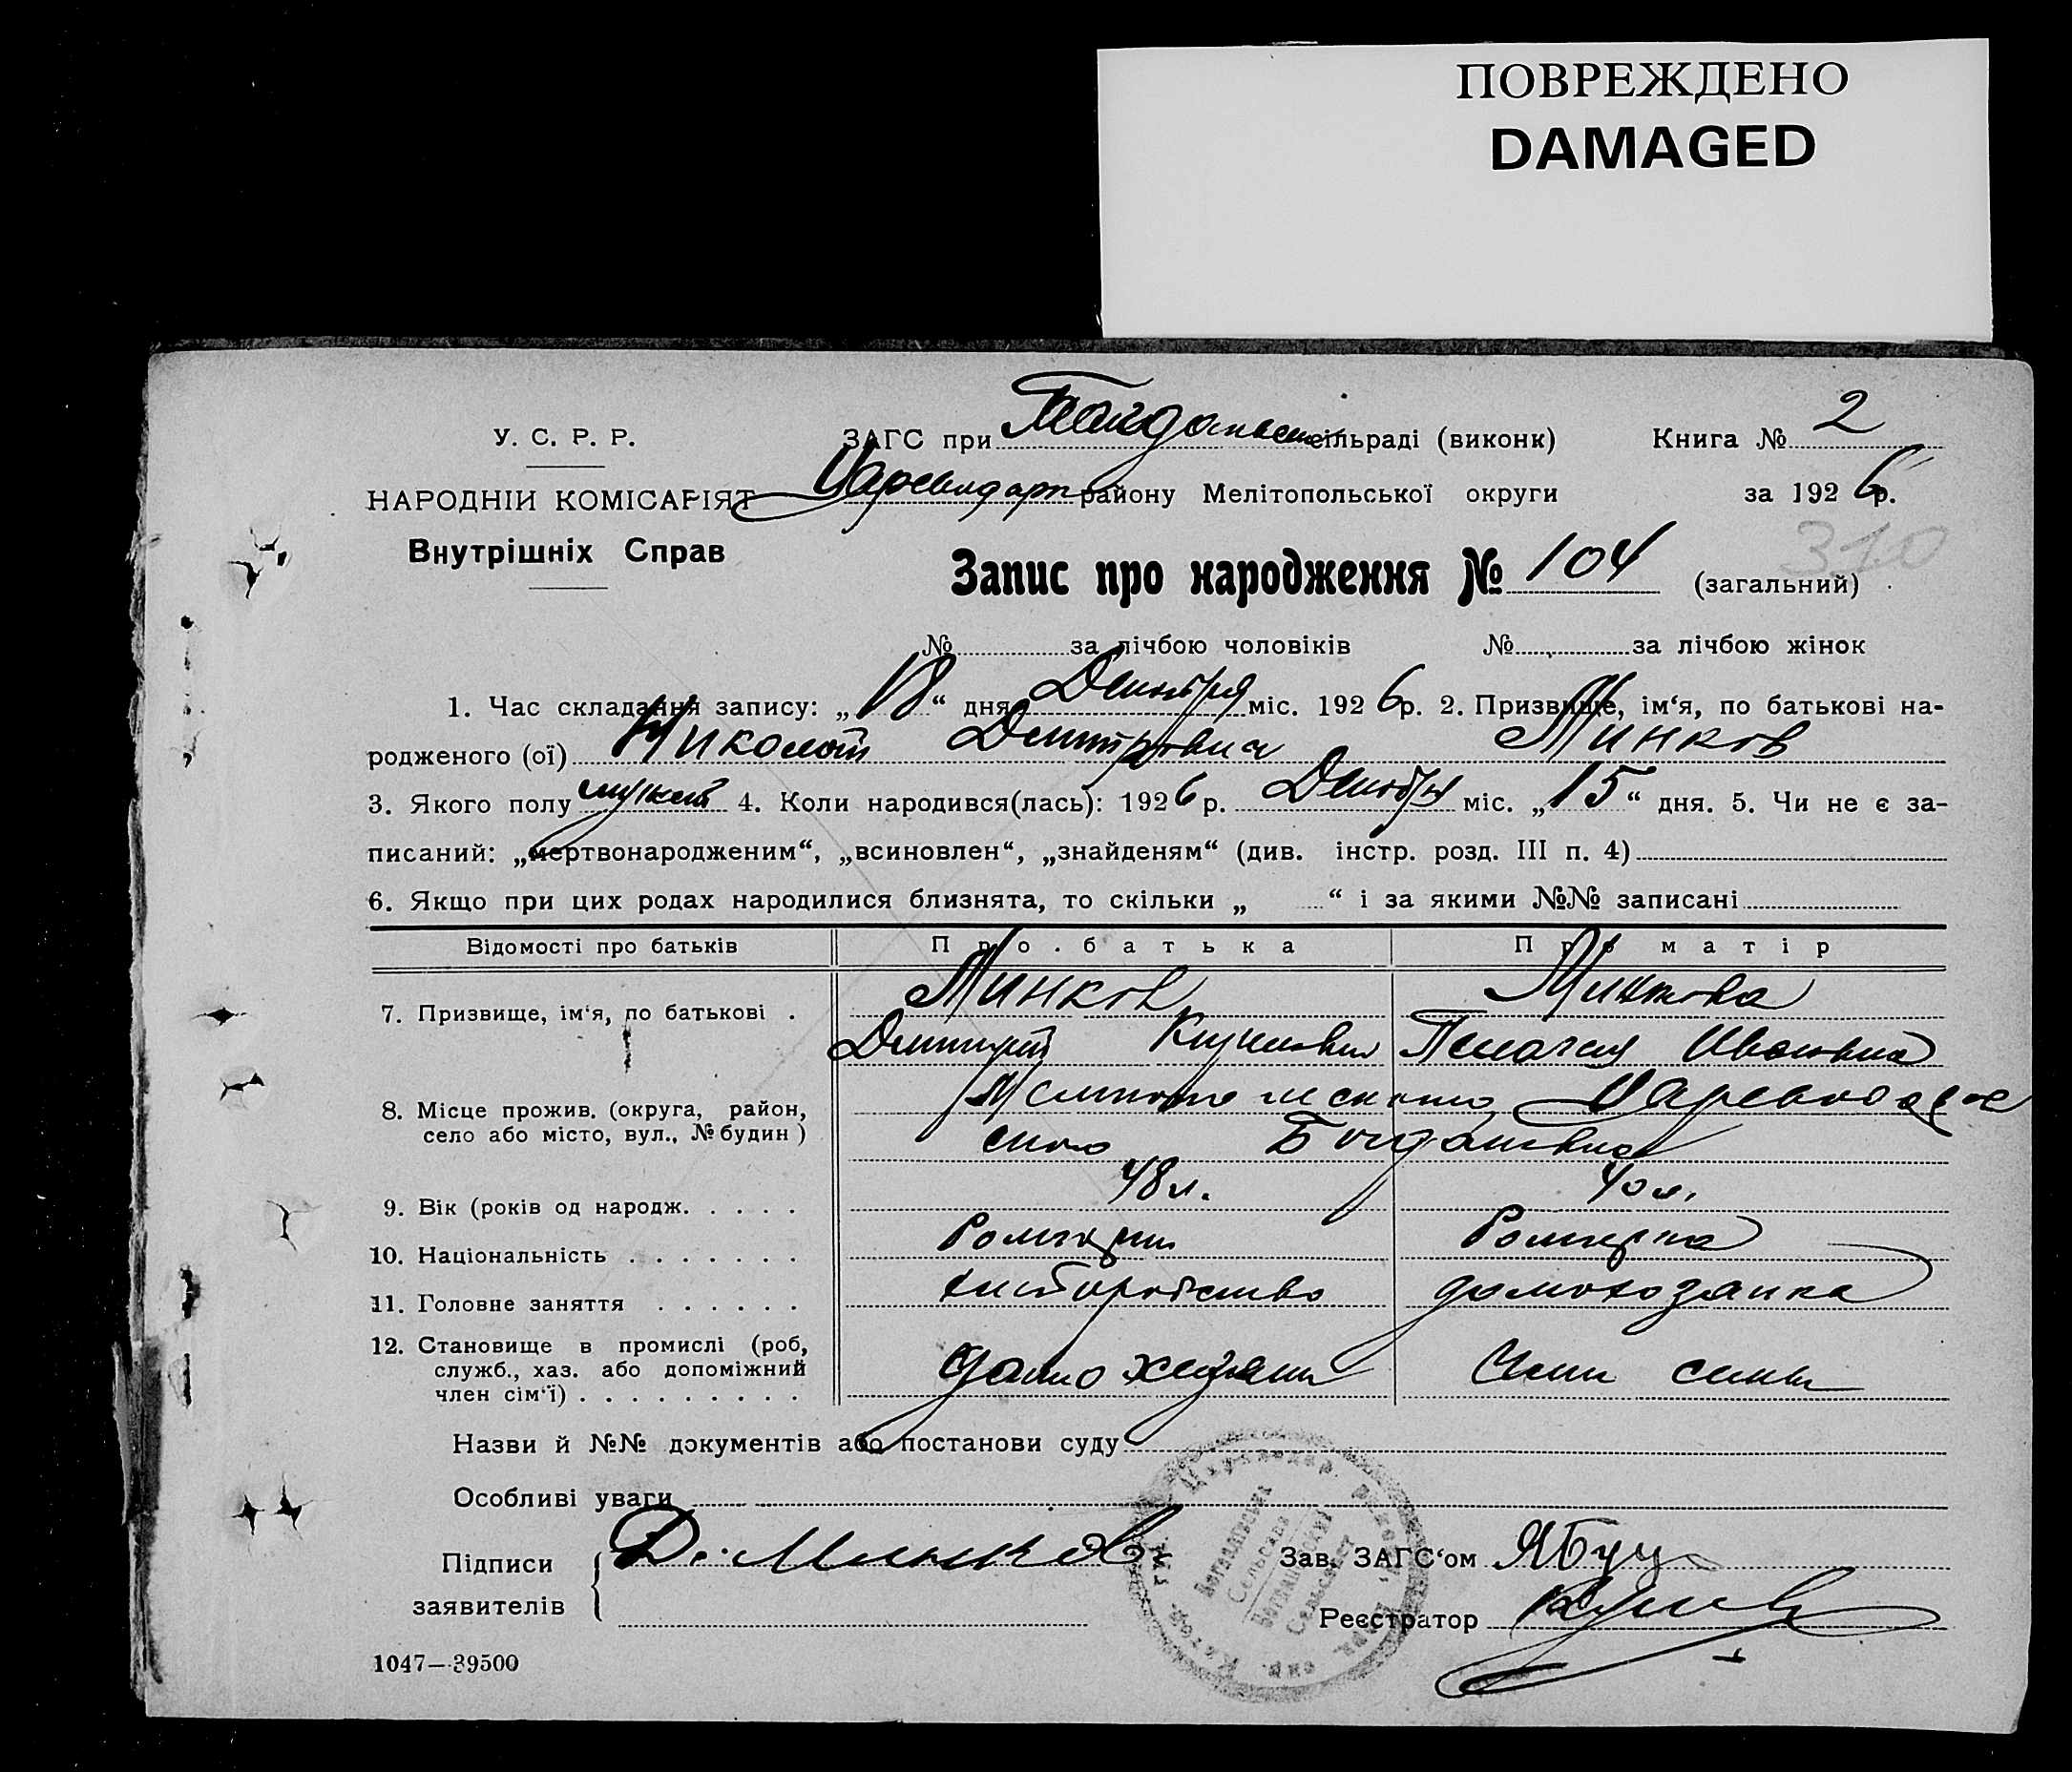 ПОВРЕЖДЕНО
DAMAGED
У. С. Р. Р.
ЗАГС при сільраді (виконк) Книга № 2
НАРОДНІЙ КОМІСАРІЯТ
району Мелітопольської округи за 1926 р.
310
Внутрішніх Справ
Запис про народження № 104 (загальний)
№ за лічбою чоловіків № за лічбою жінок
1. Час складання запису: „18“ дня Декабря міс. 1926 р. 2. Призвище, ім‘я, по батькові на-
родженого (ої) Николай Дмитрович Минков
3. Якого полу мужской 4. Коли народився(лась): 1926 р. Декабря міс. „15“ дня. 5. Чи не є за-
писаний: „мертвонародженим“, „всиновлен“, „знайденям“ (див. інстр. розд. III п. 4)
6. Якщо при цих родах народилися близнята, то скільки „ “ і за якими №№ записані
Відомості про батьків Про батька Про матір
7. Призвище, ім‘я, по батькові . Минков Минкова
Дмитрий Пелагея Ивановна
8. Місце прожив. (округа, район,
село або місто, вул., № будин )
село Богдановка
9. Вік (років од народж. . . . . 48 л. 40 л.
10. Національність . . . . . . .
11. Головне заняття . . . . . . хлеборобство домохозайка
12. Становище в промислі (роб,
служб., хаз. або допоміжний
член сім‘ї) . . . . . . . . . домохозяин Член семьи
Назви й №№ документів або постанови суду
Особливі уваги
Підписи
заявителів
Д. Минков
Зав. ЗАГС‘ом ЯБуц
Реєстратор
1047—39500